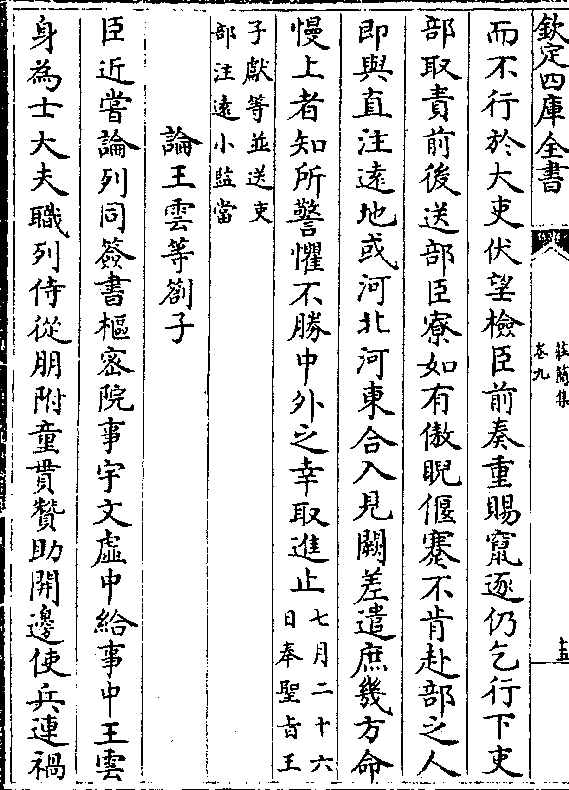 欽定四庫全書
莊簡集
卷九
十五
而不行於大吏伏望檢臣前奏重賜竄逐仍乞行下吏
部取責前後送部臣寮如有傲睨偃蹇不肯赴部之人
即與直注遠地或河北河東合入見闕差遣庶幾方命
慢上者知所警懼不勝中外之幸取進止七月二十六
日奉聖旨王
子獻等並送吏
部注遠小監當
論王雲等劄子
臣近嘗論列同簽書樞密院事宇文虛中給事中王雲
身為士大夫職列侍從朋附童貫贊助開邊使兵連禍